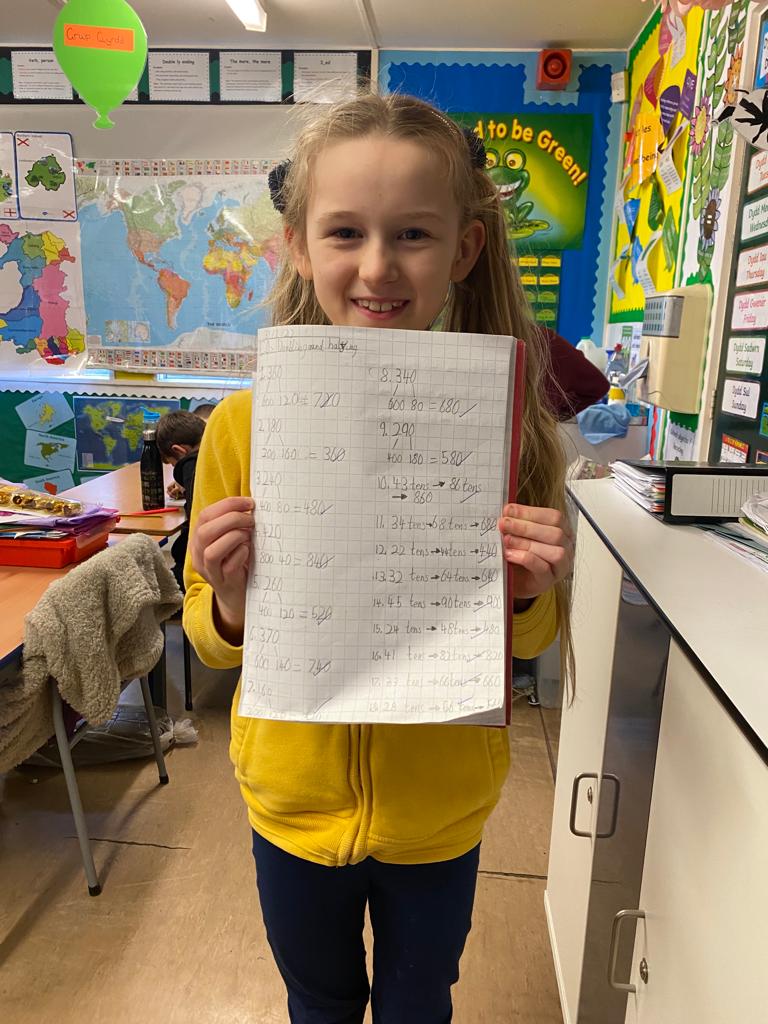 Grŵp Gwyrdd
verb, person
Double ly ending
The more, the more
I_ed
d to be Green!
THE WORLD
Dydd
Tues
Dydd Me
Wednes
Dydd Iau
Thursday
Dydd Gwener
Friday
Dydd Sadwrn
Saturday
Dydd Sul
Sunday
Doubling and halving
1.360
600 120 = 720
2.180
200 160 = 360
3.240
400 80 = 480
4.420
800 40 = 840
5.260
400 120 = 520
6.370
600 140 = 740
8.340
600 80 = 680
9.290
400 180 = 580
10. 43 tens → 86 tens
→ 860
11. 34 tens → 68 tens → 680
12. 22 tens → 44 tens → 440
13. 32 tens → 64 tens → 640
14. 45 tens → 90 tens → 900
15. 24 tens → 48 tens → 480
16. 41 tens → 82 tens → 820
17. 33 tens → 66 tens → 660
18. 28 tens → 56 tens → 560